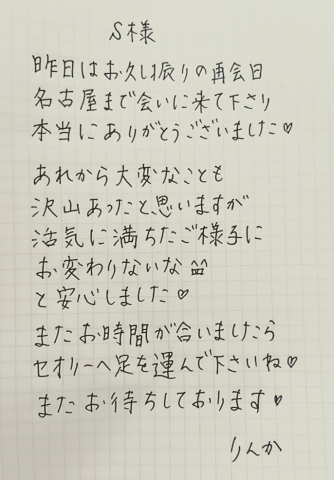 S様
昨日はお久し振りの再会日
名古屋まで会いに来て下さり
本当にありがとうございました♡
あれから大変なことも
沢山あったと思いますが
活気に満ちたご様子に
お変わりないな
と安心しました♡
またお時間が合いましたら
セオリーへ足を運んで下さいね♡
またお待ちしております♡
りんか